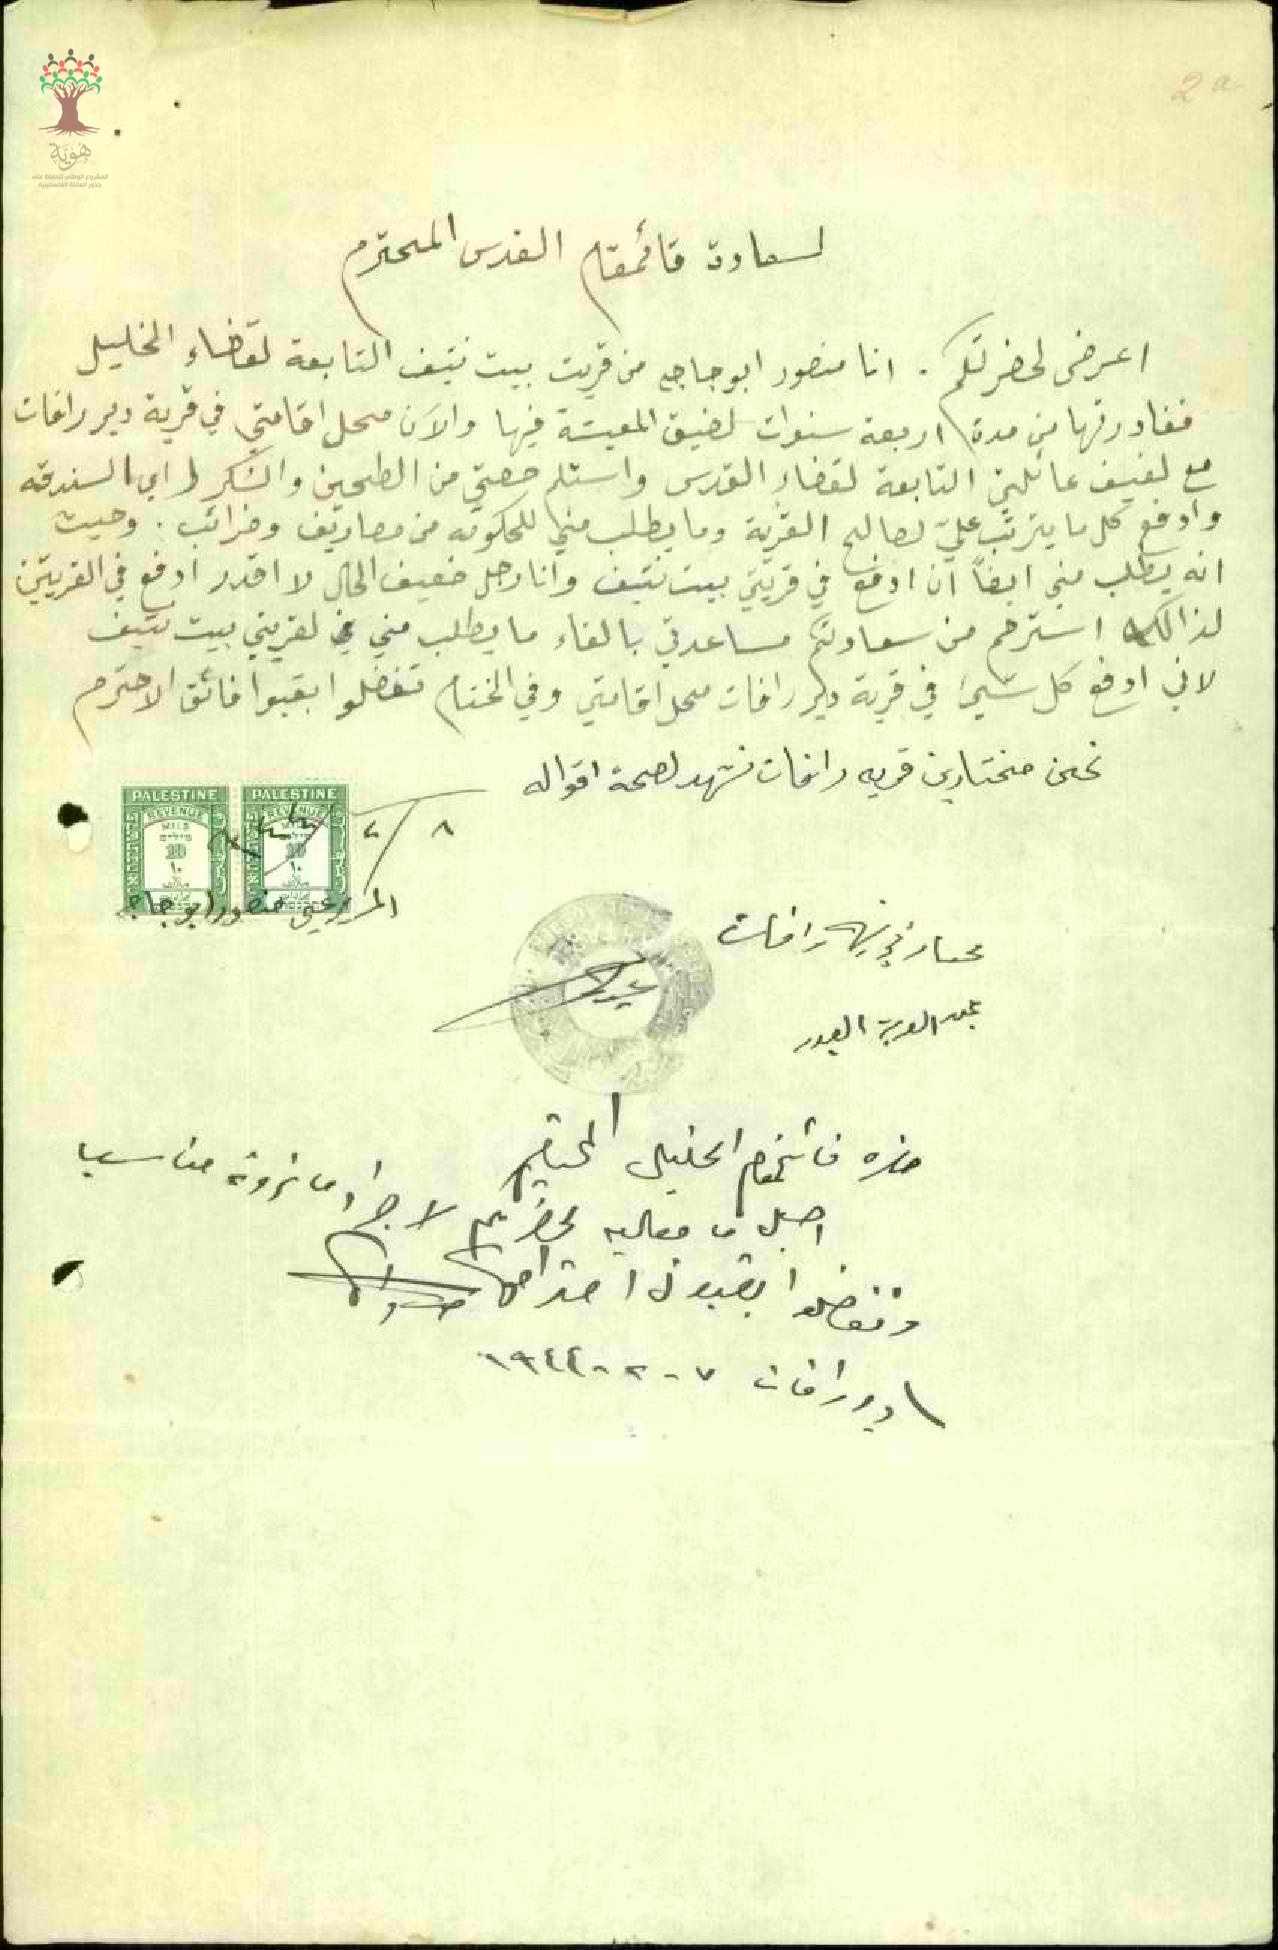 2a
هوية
المشروع الوطني للحفاظ على
جذور العائلة الفلسطينية
لسعادة قائمقام القدس المحترم
اعرض لحضرتكم . انا منصور ابو جاجه من قريت بيت نتيف التابعة لقضاء الخليل
فغادرتها من مدة اربعة سنوات لضيق المعيشة فيها والآن محل اقامتي في قرية دير رافات
مع لفيف عائلتي التابعة لقضاء القدس واستلم حصتي من الطحين والسكر اي السندقه
وادفع كل ما يترتب علي لصالح القرية وما يطلب مني للحكومه من مصاريف وضرائب . وحيث
انه يطلب مني ايضاً ان ادفع في قريتي بيت نتيف وانا رجل ضعيف الحال لا اقدر ادفع في القريتين
لذالك استرحم من سعادتكم مساعدتي بالغاء ما يطلب مني في لقريتي بيت نتيف
لاني ادفع كل شيئ في قرية دير رافات محل اقامتي وفي الختام تفضلوا بقبوا فائق الاحترام
نحن مختارين قريه رافات نشهد لصحة اقواله
PALESTINE PALESTINE
REVENUE REVENUE
MILS MILS
10 10
١٠ ١٠
٨/٢/
منصور ابو جاجه
مختار قرية رافات
حضرة قائمقام الخليل المحترم
لحضرتكم لاجراء ما ترونه مناسبا
وتفضلوا بقبول احترامي
دير رافات ٧-٢-١٩٤٤